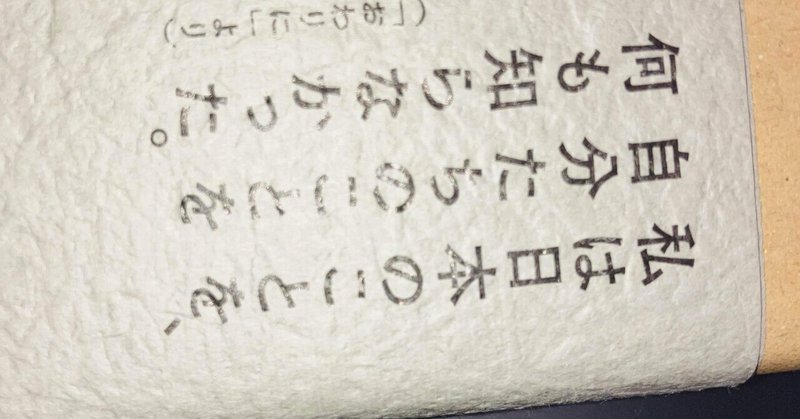 私は日本のことを、
自分たちのことを
何も知らなかった。
(「おわりに」より)